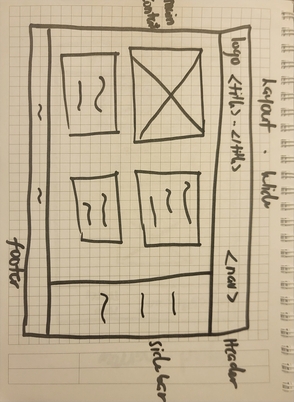 Layout . Wide
logo <title> - </title> <nav>
Header
main
content
sidebar
footer